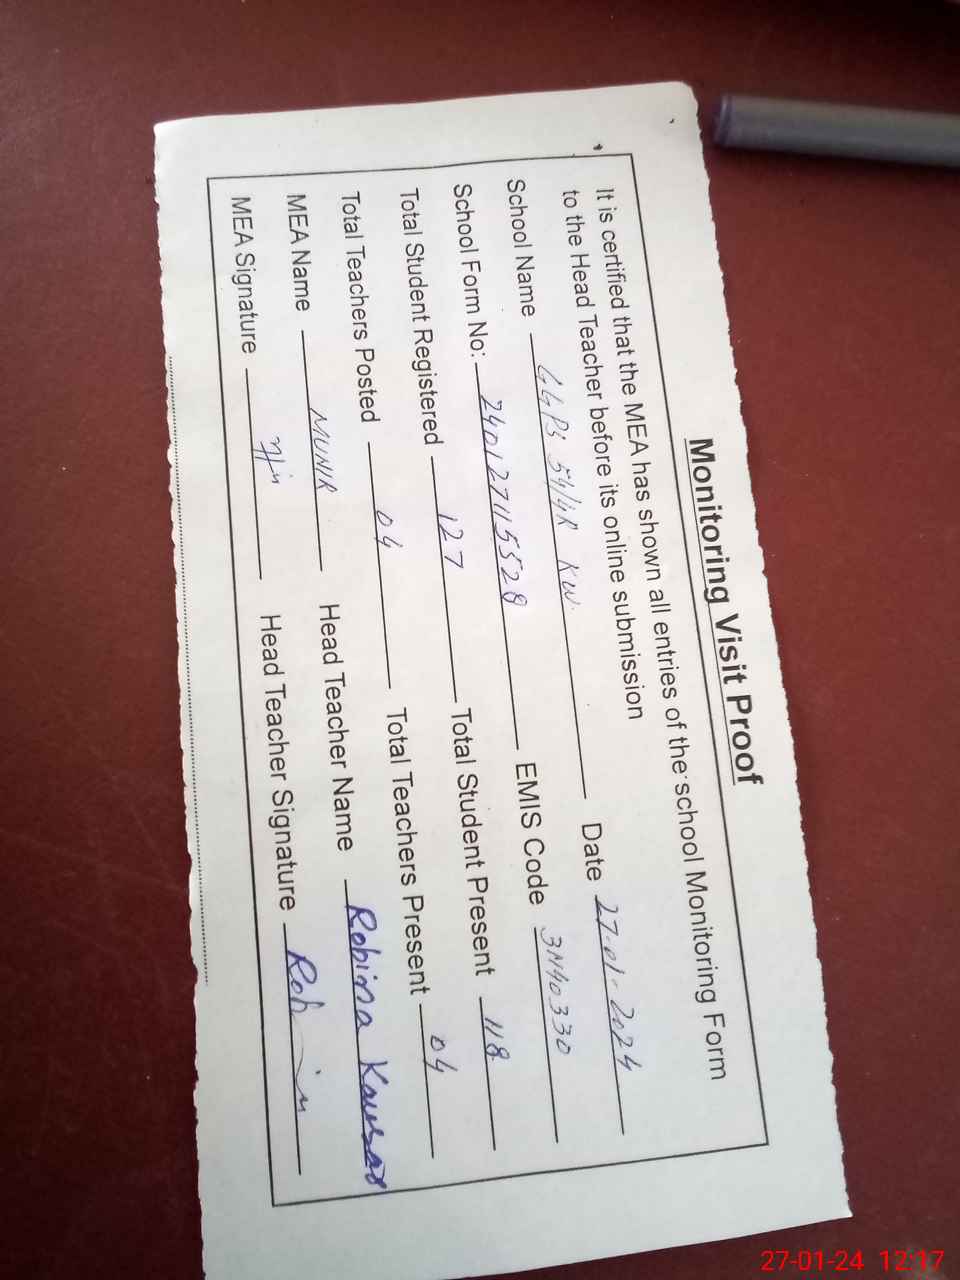 Monitoring Visit Proof
It is certified that the MEA has shown all entries of the school Monitoring Form
to the Head Teacher before its online submission
School Name GGPS 54/4R KW Date 27-01-2024
School Form No: 240127115528 EMIS Code
Total Student Registered 127 Total Student Present 118
Total Teachers Posted 04 Total Teachers Present 04
MEA Name MUNIR Head Teacher Name Robina Kausar
MEA Signature Head Teacher Signature
27-01-24 12:17